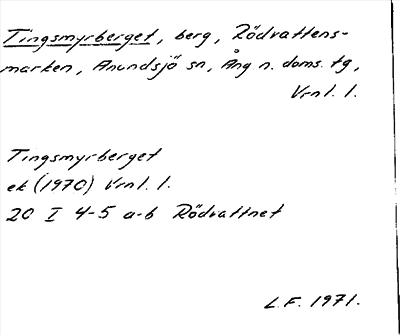 Tingsmyrberget, berg, Rödvattens-
marken, Anundsjö sn, Ång n. doms. tg,
Vrnl. l.
Tingsmyrberget
ek (1970) Vrnl. l.
20 I 4-5 a-b Rödvattnet
L.F. 1971.